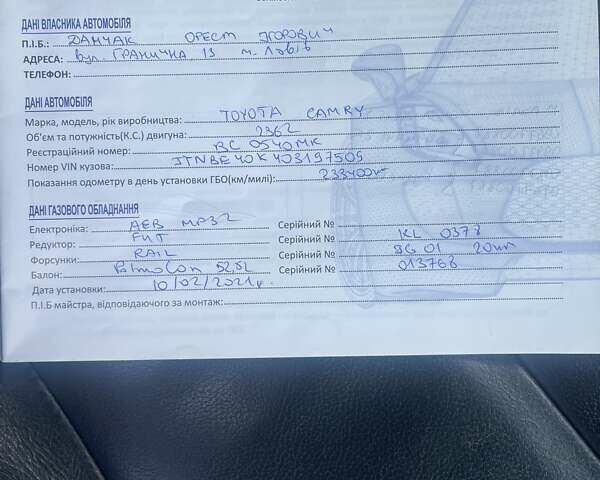 ДАНІ ВЛАСНИКА АВТОМОБІЛЯ
П.І.Б.: ДАНЧАК ОРЕСТ ІГОРОВИЧ
АДРЕСА: вул. ГРАНИЧНА 13 м. Львів
ТЕЛЕФОН:
ДАНІ АВТОМОБІЛЯ
Марка, модель, рік виробництва: TOYOTA CAMRY
Об'єм та потужність(К.С.) двигуна: 2362
Реєстраційний номер: BC 0540 MK
Номер VIN кузова: JTNBE40K403197509
Показання одометру в день установки ГБО(км/милі): 233400
ДАНІ ГАЗОВОГО ОБЛАДНАННЯ
Електроніка: AEB MP32 Серійний №
Редуктор: Серійний № KL 0378
Форсунки: RAIL Серійний № 3G01
Балон: 52,5L Серійний № 013768
Дата установки: 10/02/2021р.
П.І.Б майстра, відповідаючого за монтаж: